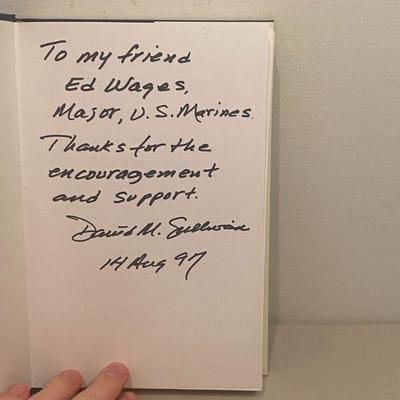 To my friend
Ed Wages,
Major, U.S. Marines.
Thanks for the
encouragement
and support.
David M. Sullivan
14 Aug 97